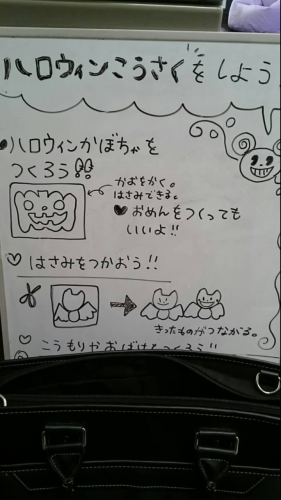 ハロウィンこうさくをしよう
♥ハロウィンかぼちゃを
つくろう!!
かおをかく。
はさみできる。
♥おめんをつくっても
いいよ!!
♡はさみをつかおう!!
きったものがつながる。
♡こうもりやおばけをつくろう!!